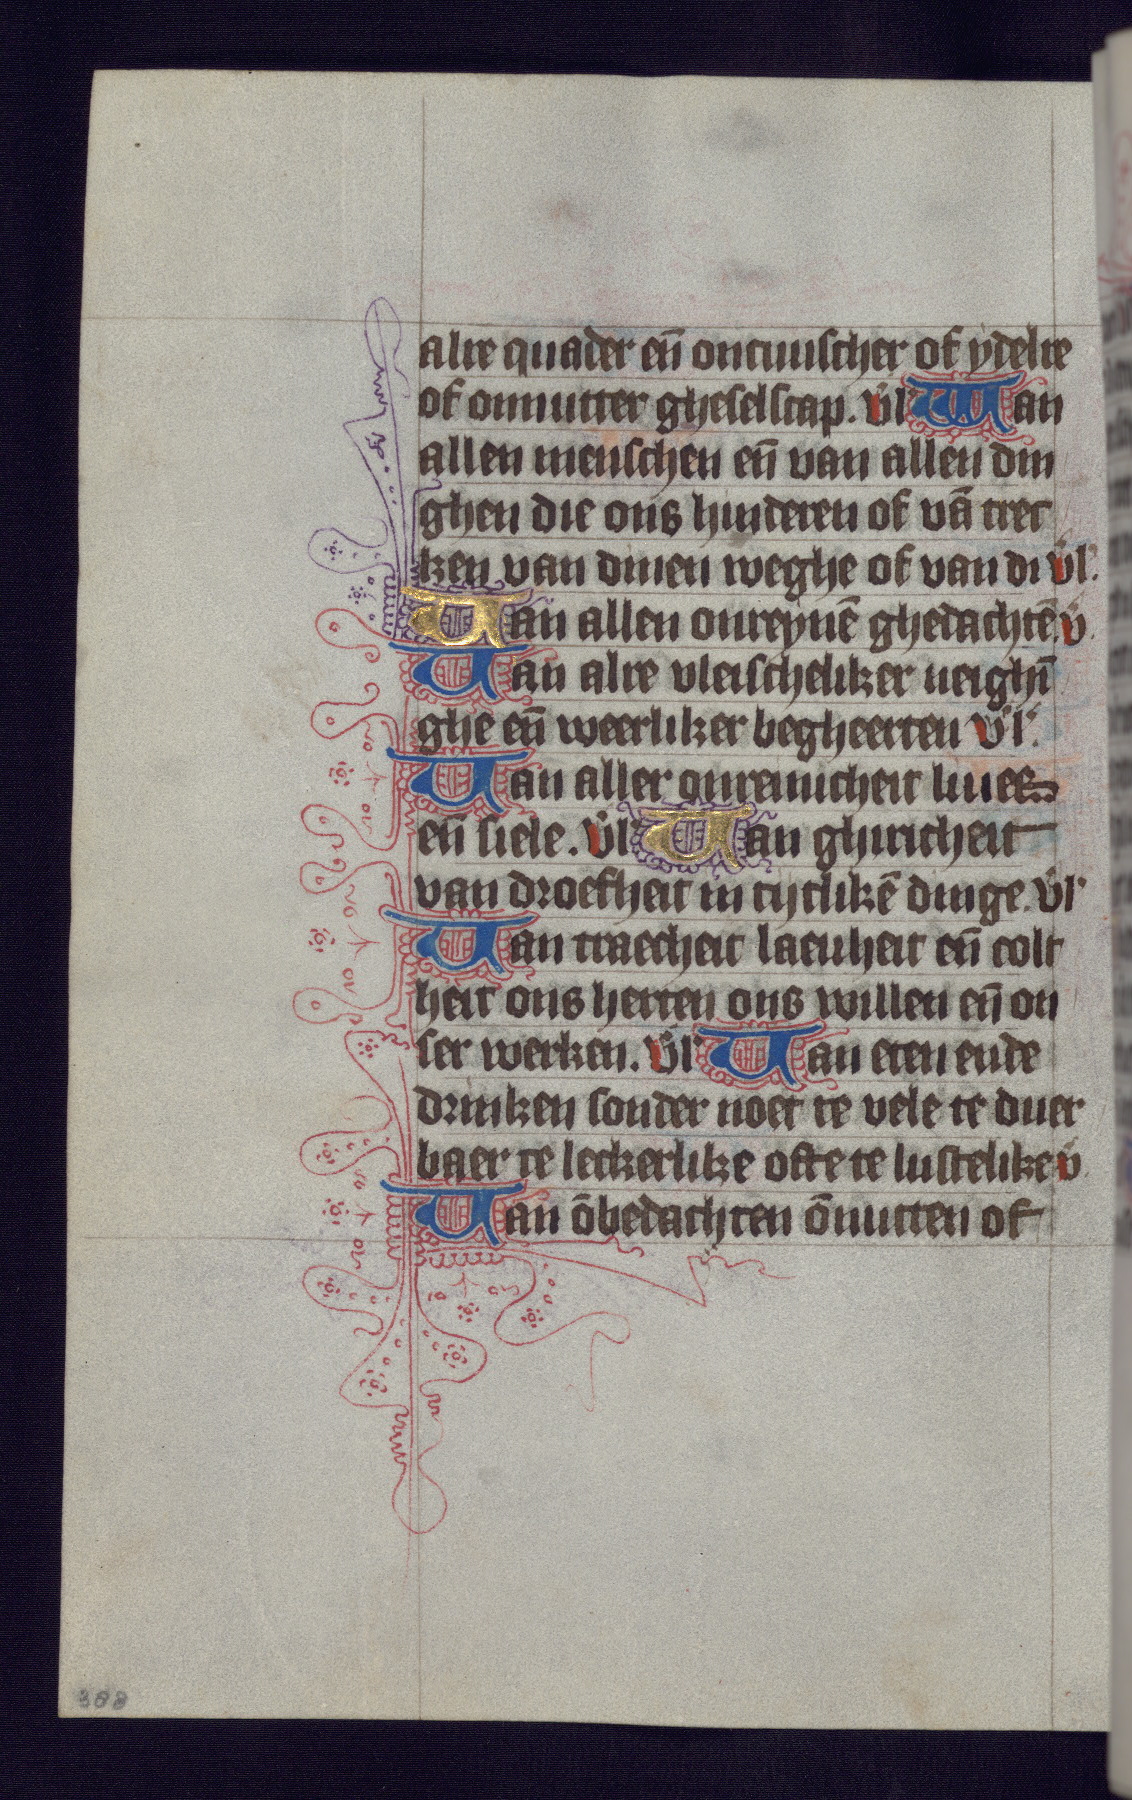 alre quader en̄ oncuuscher of ydelre
of onnutter gheselscap. Vl' Van
allen menschen en̄ van allen din
ghen die ons hinderen of vā trec
ken van dinen weghe of van di Vl'.
Van allen onreynē ghedachtē. V.
Van alre vleischeliker neighī
ghe en̄ weerliker begheerten Vl'.
Van aller onreinicheit liues
en̄ siele. Vl' Van ghiricheit
van droefheit in tytlikē dinge. Vl'
Van traecheit laeuheit en̄ colt
heit ons herten ons willen en̄ on
ser werken. Vl' Van eten ende
drinken sonder noet te vele te duer
baer te leckerlike ofte te lustelike V.
Van ōbedachten ōnutten of
388